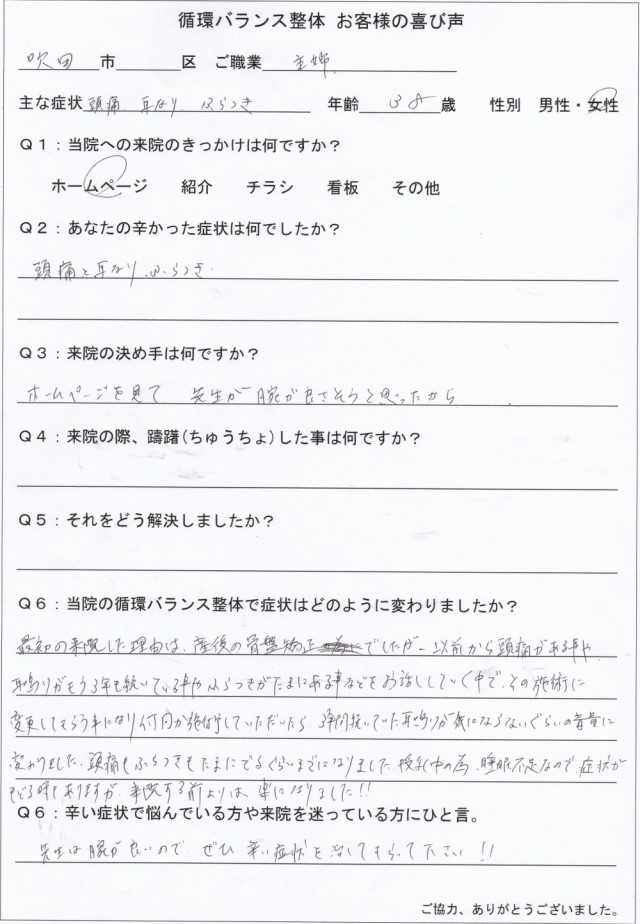 循環バランス整体 お客様の喜び声
吹田 市 区 ご職業 主婦
主な症状 頭痛 耳なり ふらつき 年齢 歳 性別 男性・女性
Q1:当院への来院のきっかけは何ですか?
ホームページ 紹介 チラシ 看板 その他
Q2:あなたの辛かった症状は何でしたか?
頭痛と耳なり、ふらつき
Q3:来院の決め手は何ですか?
ホームページを見て 先生が腕が良さそうと思ったから
Q4:来院の際、躊躇(ちゅうちょ)した事は何ですか?
Q5:それをどう解決しましたか?
Q6:当院の循環バランス整体で症状はどのように変わりましたか?
最初の来院した理由は、産後の骨盤矯正でしたが、以前から頭痛がある事や
耳鳴りがもう3年も続いている事やふらつきがたまにある事などをお話ししていく中で、その施術に
変更してもらう事になり何回か施術していただいたら 3年間続いていた耳鳴りが気にならないぐらいの音量に
変わりました。頭痛もふらつきもたまにでるぐらいまでになりました。授乳中の為、睡眠不足なので、症状が
もどる時もありますが、来院する前よりは、楽になりました!!
Q6:辛い症状で悩んでいる方や来院を迷っている方にひと言。
先生は腕が良いので、ぜひ 辛い症状を治してもらって下さい!!
ご協力、ありがとうございました。